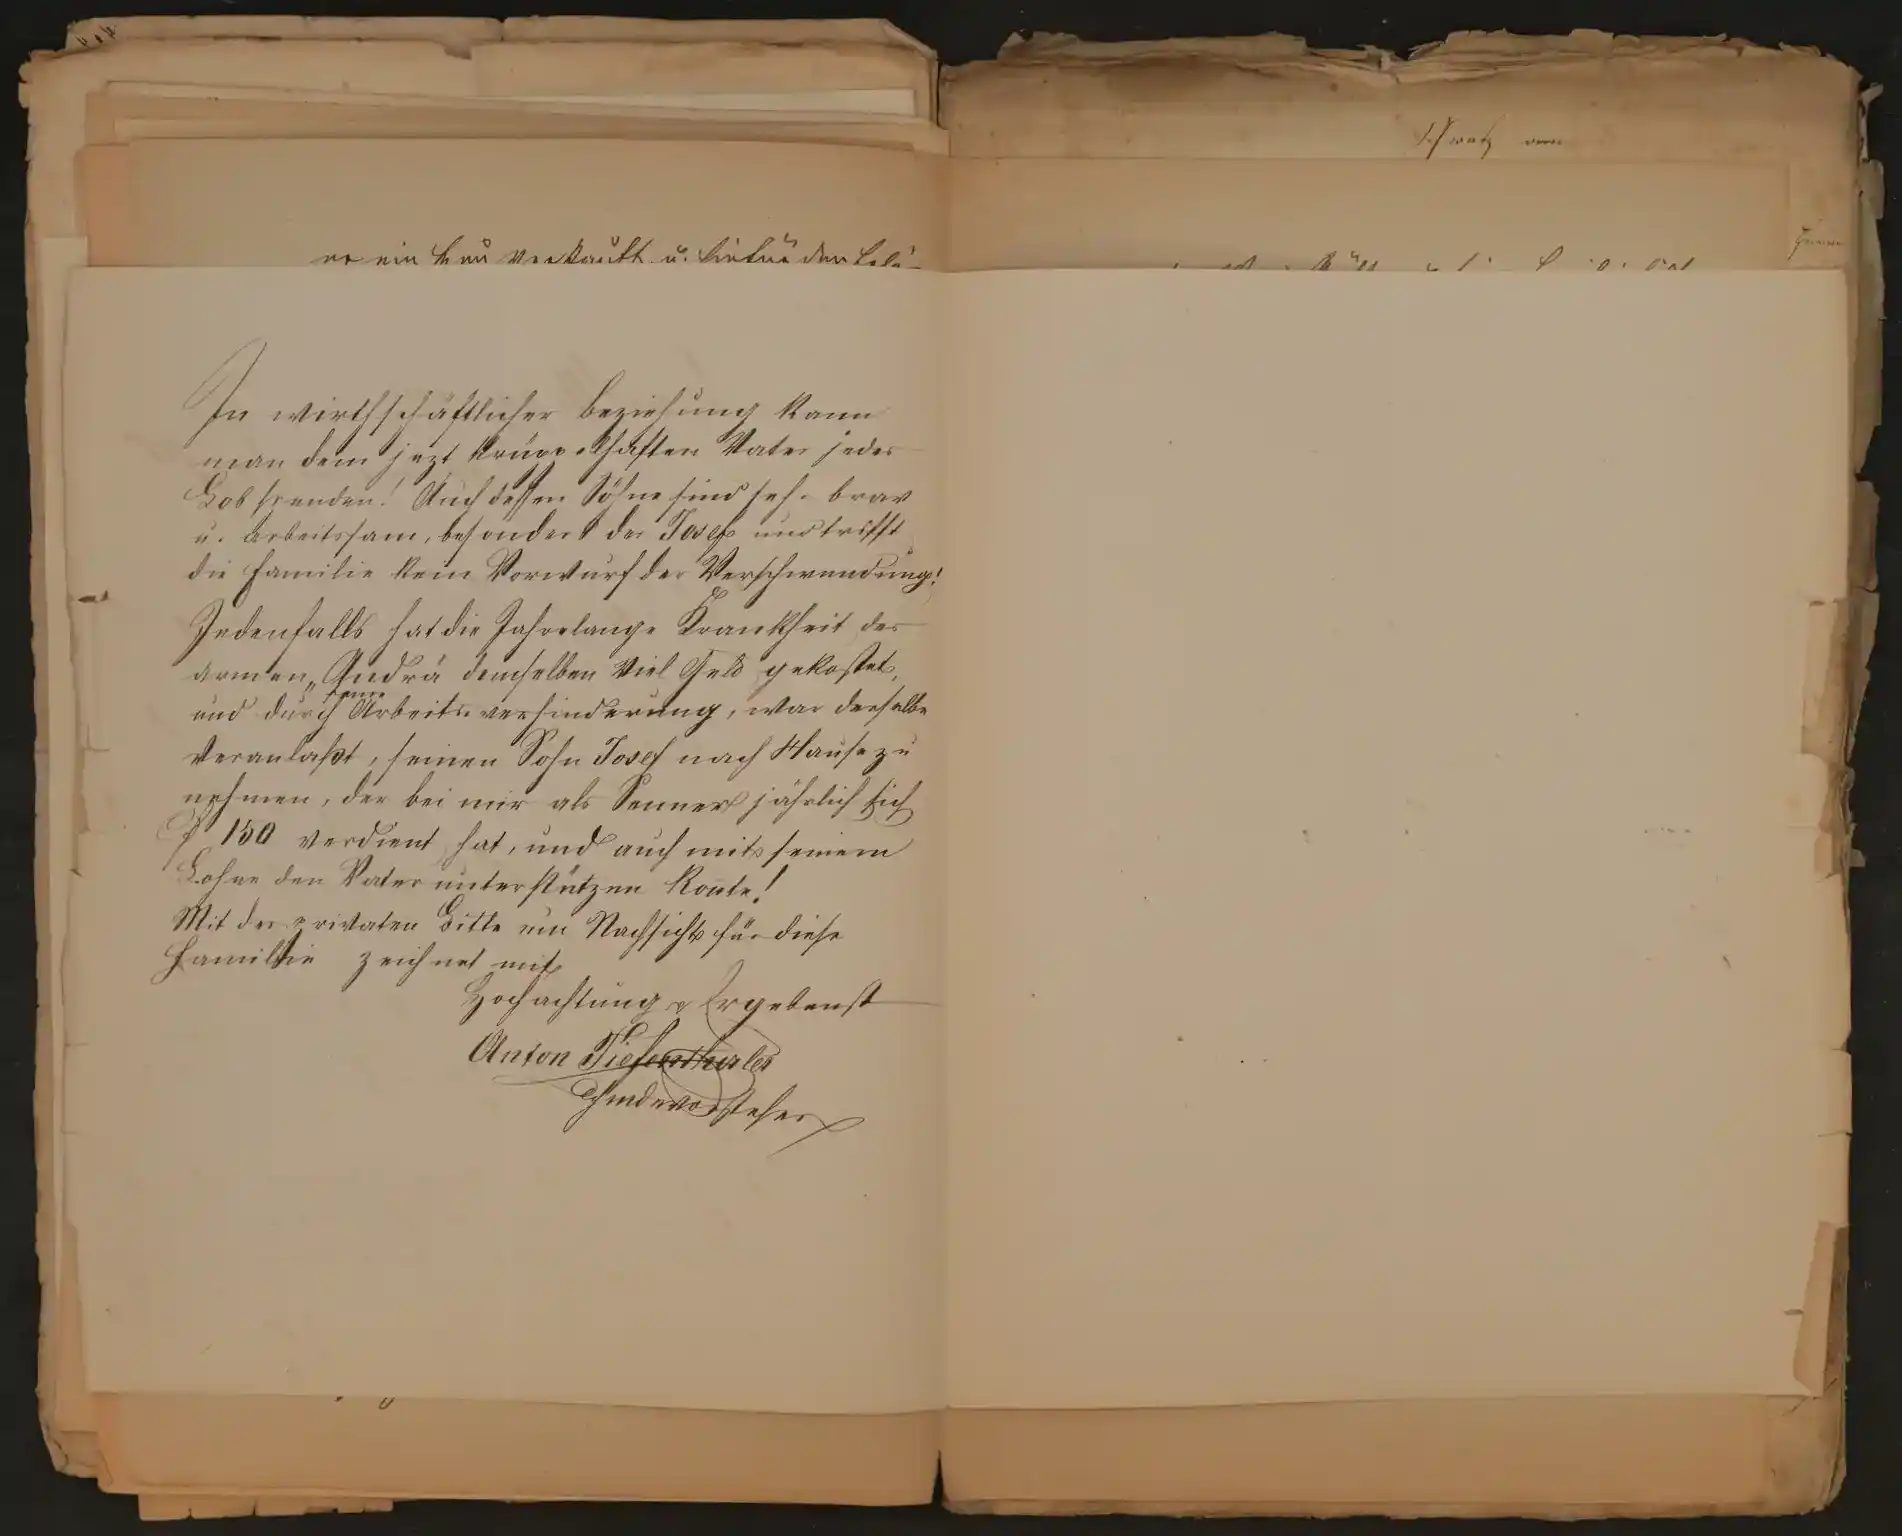 er ein Heu verkauft u. hiefür den
In wirthschäftlicher Beziehung kann
man dem jezt krüppelhaften Vater jedes
Lob spenden! Auch dessen Söhne sind sehr brav
u. arbeitssam, besonders der Josef und trifft
die Familie kein Vorwurf der Verschwendung!
Jedenfalls hat die Jahrelange Krankheit des
armen „Andrä demselben viel Geld gekostet,
und durch Arbeits verhinderung, war derselbe
veranlaßt, seinen Sohn Josef nach Hause zu
nehmen, der bei mir als Senner jährlich sich
f 150 verdient hat, und auch mit seinem
Lohne den Vater unterstützen konte!
Mit der privaten Bitte um Nachsicht für diese
Familie zeichnet mit
Hochachtung Ergebenst
Anton Tiefenthaler
Gmdevorsteher